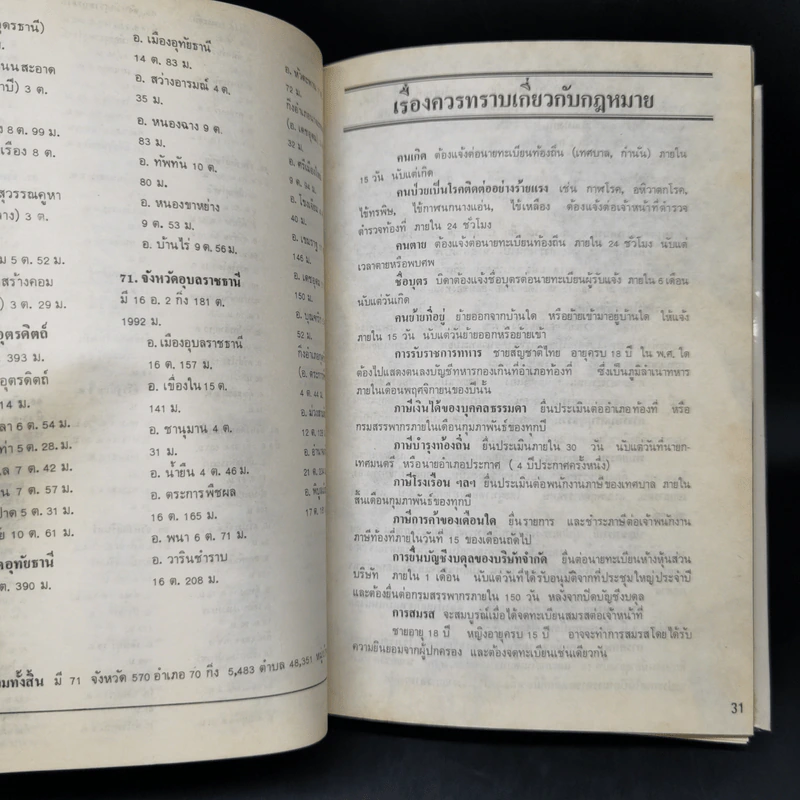 อุดรธานี)
ม.
นนสะอาด
3 ต.
ง 8 ต. 99 ม.
เรือง 8 ต.
สุวรรณคูหา
3 ต.
ม 5 ต. 52 ม.
สร้างคอม
3 ต. 29 ม.
อุตรดิตถ์
393 ม.
อุตรดิตถ์
14 ม.
ลา 6 ต. 54 ม.
ท่า 5 ต. 28 ม.
ล 7 ต. 42 ม.
น 7 ต. 57 ม.
ปาด 5 ต. 31 ม.
ย 10 ต. 61 ม.
อุทัยธานี
ต. 390 ม.
อ. เมืองอุทัยธานี
14 ต. 83 ม.
อ. สว่างอารมณ์ 4 ต.
35 ม.
อ. หนองฉาง 9 ต.
83 ม.
อ. ทัพทัน 10 ต.
80 ม.
อ. หนองขาหย่าง
9 ต. 53 ม.
อ. บ้านไร่ 9 ต. 56 ม.
71. จังหวัดอุบลราชธานี
มี 16 อ. 2 กิ่ง 181 ต.
1992 ม.
อ. เมืองอุบลราชธานี
16 ต. 157 ม.
อ. เขื่องใน 15 ต.
141 ม.
อ. ชานุมาน 4 ต.
31 ม.
อ. น้ำยืน 4 ต. 46 ม.
อ. ตระการพืชผล
16 ต. 165 ม.
อ. พนา 6 ต. 71 ม.
อ. วารินชำราบ
16 ต. 208 ม.
72 ม.
กิ่งอำเภอ
32 ม.
40 ม.
146 ม.
150 ม.
52 ม.
มทั้งสิ้น มี 71 จังหวัด 570 อำเภอ 70 กิ่ง 5,483 ตำบล 48,351
เรื่องควรทราบเกี่ยวกับกฎหมาย
คนเกิด ต้องแจ้งต่อนายทะเบียนท้องถิ่น (เทศบาล, กำนัน) ภายใน
15 วัน นับแต่เกิด
คนป่วยเป็นโรคติดต่ออย่างร้ายแรง เช่น กาฬโรค, อหิวาตกโรค,
ไข้ทรพิษ, ไข้กาฬนกนางแอ่น, ไข้เหลือง ต้องแจ้งต่อเจ้าหน้าที่ตำรวจ
ตำรวจท้องที่ ภายใน 24 ชั่วโมง
คนตาย ต้องแจ้งต่อนายทะเบียนท้องถิ่น ภายใน 24 ชั่วโมง นับแต่
เวลาตายหรือพบศพ
ชื่อบุตร บิดาต้องแจ้งชื่อบุตรต่อนายทะเบียนผู้รับแจ้ง ภายใน 6 เดือน
นับแต่วันเกิด
คนย้ายที่อยู่ ย้ายออกจากบ้านใด หรือย้ายเข้ามาอยู่บ้านใด ให้แจ้ง
ภายใน 15 วัน นับแต่วันย้ายออกหรือย้ายเข้า
การรับราชการทหาร ชายสัญชาติไทย อายุครบ 18 ปี ใน พ.ศ. ใด
ต้องไปแสดงตนลงบัญชีทหารกองเกินที่อำเภอท้องที่ ซึ่งเป็นภูมิลำเนาทหาร
ภายในเดือนพฤศจิกายนของปีนั้น
ภาษีเงินได้ของบุคคลธรรมดา ยื่นประเมินต่ออำเภอท้องที่ หรือ
กรมสรรพากรภายในเดือนกุมภาพันธ์ของทุกปี
ภาษีบำรุงท้องถิ่น ยื่นประเมินภายใน 30 วัน นับแต่วันที่นายก-
เทศมนตรี หรือนายอำเภอประกาศ ( 4 ปีประกาศครั้งหนึ่ง)
ภาษีโรงเรือน ฯลฯ ยื่นประเมินต่อพนักงานภาษีของเทศบาล ภายใน
สิ้นเดือนกุมภาพันธ์ของทุกปี
ภาษีการค้าของเดือนใด ยื่นรายการ และชำระภาษีต่อเจ้าพนักงาน
ภาษีท้องที่ภายในวันที่ 15 ของเดือนถัดไป
การยื่นบัญชีงบดุลของบริษัทจำกัด ยื่นต่อนายทะเบียนห้างหุ้นส่วน
บริษัท ภายใน 1 เดือน นับแต่วันที่ได้รับอนุมัติจากที่ประชุมใหญ่ประจำปี
และต้องยื่นต่อกรมสรรพากรภายใน 150 วัน หลังจากปิดบัญชีงบดุล
การสมรส จะสมบูรณ์เมื่อได้จดทะเบียนสมรสต่อเจ้าหน้าที่
ชายอายุ 18 ปี หญิงอายุครบ 15 ปี อาจจะทำการสมรสโดยได้รับ
ความยินยอมจากผู้ปกครอง และต้องจดทะเบียนเช่นเดียวกัน
31